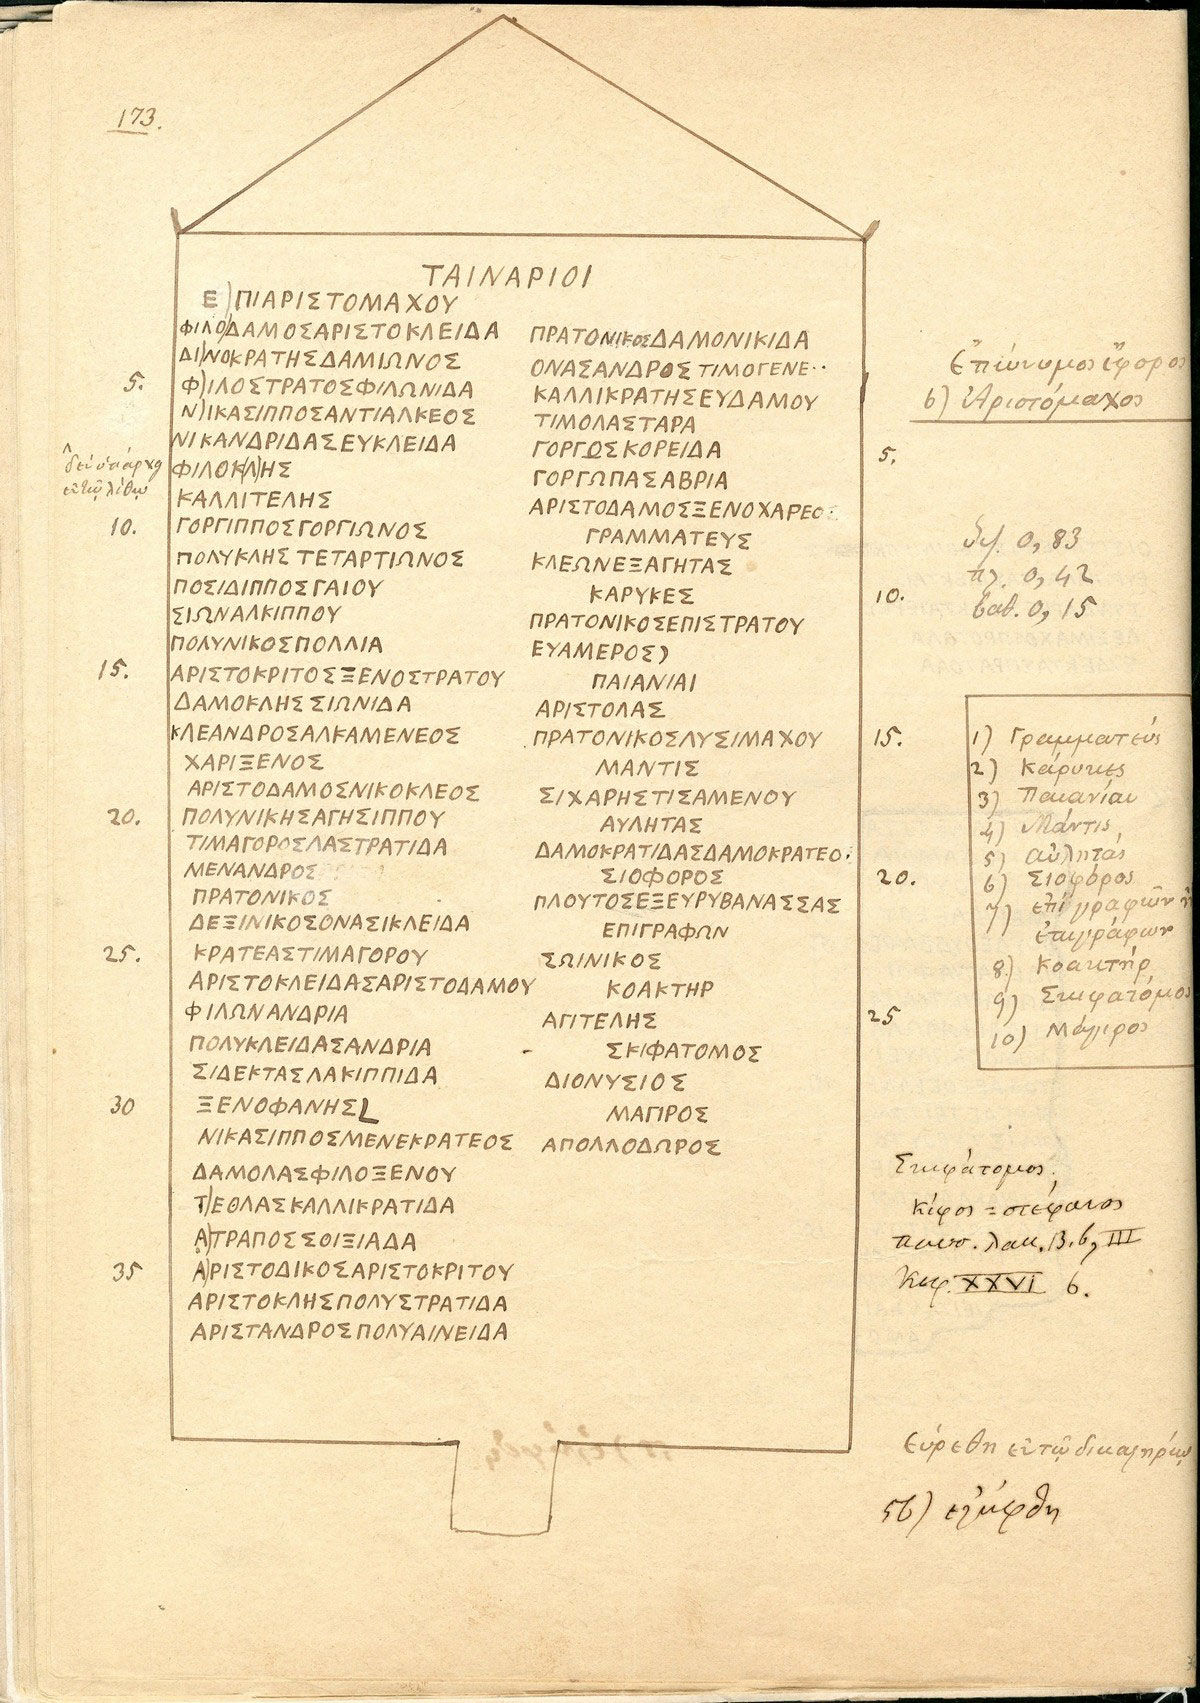 173.
ΤΑΙΝΑΡΙΟΙ
Ε)ΠΙΑΡΙΣΤΟΜΑΧΟΥ
ΦΙΛΟ)ΔΑΜΟΣΑΡΙΣΤΟΚΛΕΙΔΑ
ΔΙ)ΝΟΚΡΑΤΗΣΔΑΜΙΩΝΟΣ
5. Φ)ΙΛΟΣΤΡΑΤΟΣΦΙΛΩΝΙΔΑ
Ν)ΙΚΑΣΙΠΠΟΣΑΝΤΙΑΛΚΕΟΣ
ΝΙΚΑΝΔΡΙΔΑΣΕΥΚΛΕΙΔΑ
ΦΙΛΟΚ(Λ)ΗΣ
ΚΑΛΛΙΤΕΛΗΣ
10. ΓΟΡΓΙΠΠΟΣΓΟΡΓΙΩΝΟΣ
ΠΟΛΥΚΛΗΣΤΕΤΑΡΤΙΩΝΟΣ
ΠΟΣΙΔΙΠΠΟΣΓΑΙΟΥ
ΣΙΩΝΑΛΚΙΠΠΟΥ
ΠΟΛΥΝΙΚΟΣΠΟΛΛΙΑ
15. ΑΡΙΣΤΟΚΡΙΤΟΣΞΕΝΟΣΤΡΑΤΟΥ
ΔΑΜΟΚΛΗΣΣΙΩΝΙΔΑ
ΚΛΕΑΝΔΡΟΣΑΛΚΑΜΕΝΕΟΣ
ΧΑΡΙΞΕΝΟΣ
ΑΡΙΣΤΟΔΑΜΟΣΝΙΚΟΚΛΕΟΣ
20. ΠΟΛΥΝΙΚΗΣΑΓΗΣΙΠΠΟΥ
ΤΙΜΑΓΟΡΟΣΛΑΣΤΡΑΤΙΔΑ
ΜΕΝΑΝΔΡΟΣ
ΠΡΑΤΟΝΙΚΟΣ
ΔΕΞΙΝΙΚΟΣΟΝΑΣΙΚΛΕΙΔΑ
25. ΚΡΑΤΕΑΣΤΙΜΑΓΟΡΟΥ
ΑΡΙΣΤΟΚΛΕΙΔΑΣΑΡΙΣΤΟΔΑΜΟΥ
ΦΙΛΩΝΑΝΔΡΙΑ
ΠΟΛΥΚΛΕΙΔΑΣΑΝΔΡΙΑ
ΣΙΔΕΚΤΑΣΛΑΚΙΠΠΙΔΑ
30 ΞΕΝΟΦΑΝΗΣL
ΝΙΚΑΣΙΠΠΟΣΜΕΝΕΚΡΑΤΕΟΣ
ΔΑΜΟΛΑΣΦΙΛΟΞΕΝΟΥ
Τ)ΕΘΛΑΣΚΑΛΛΙΚΡΑΤΙΔΑ
Α)ΤΡΑΠΟΣΣΟΙΞΙΑΔΑ
35 Α)ΡΙΣΤΟΔΙΚΟΣΑΡΙΣΤΟΚΡΙΤΟΥ
ΑΡΙΣΤΟΚΛΗΣΠΟΛΥΣΤΡΑΤΙΔΑ
ΑΡΙΣΤΑΝΔΡΟΣΠΟΛΥΑΙΝΕΙΔΑ
ΠΡΑΤΟΝΙΚΟΣΔΑΜΟΝΙΚΙΔΑ
ΟΝΑΣΑΝΔΡΟΣΤΙΜΟΓΕΝΕ..
ΚΑΛΛΙΚΡΑΤΗΣΕΥΔΑΜΟΥ
ΤΙΜΟΛΑΣΤΑΡΑ
ΓΟΡΓΩΣΚΟΡΕΙΔΑ 5.
ΓΟΡΓΩΠΑΣΑΒΡΙΑ
ΑΡΙΣΤΟΔΑΜΟΣΞΕΝΟΧΑΡΕΟ:
ΓΡΑΜΜΑΤΕΥΣ
ΚΛΕΩΝΕΞΑΓΗΤΑΣ
ΚΑΡΥΚΕΣ 10.
ΠΡΑΤΟΝΙΚΟΣΕΠΙΣΤΡΑΤΟΥ
ΕΥΑΜΕΡΟΣ)
ΠΑΙΑΝΙΑΙ
ΑΡΙΣΤΟΛΑΣ
ΠΡΑΤΟΝΙΚΟΣΛΥΣΙΜΑΧΟΥ 15.
ΜΑΝΤΙΣ
ΣΙΧΑΡΗΣΤΙΣΑΜΕΝΟΥ
ΑΥΛΗΤΑΣ
ΔΑΜΟΚΡΑΤΙΔΑΣΔΑΜΟΚΡΑΤΕΟ:
ΣΙΟΦΟΡΟΣ 20.
ΠΛΟΥΤΟΣΕΞΕΥΡΥΒΑΝΑΣΣΑΣ
ΕΠΙΓΡΑΦΩΝ
ΣΩΙΝΙΚΟΣ
ΚΟΑΚΤΗΡ
ΑΓΙΤΕΛΗΣ 25
ΣΚΙΦΑΤΟΜΟΣ
ΔΙΟΝΥΣΙΟΣ
ΜΑΓΙΡΟΣ
ΑΠΟΛΛΟΔΩΡΟΣ
Ἐπώνυμος ἔφορος
6) Ἀριστόμαχος
ὑψ. 0,83
πλ. 0,42
βαθ. 0,15
1) Γραμματεύς
2) Κάρυκες
3) Παιανίαι
4) Μάντις
5) αὐλητάς
6) Σιοφόρος
7) ἐπιγραφῶν ἢ
ἐπιγράφων
8) Κοακτήρ
9) Σκιφατόμος
10) Μάγιρος
Σκιφάτομος.
κίφος = στέφανος
παυσ. λακ. Β. 6, III
Κεφ. XXVI 6.
Εὑρέθη ἐν τῷ
56) ἐλήφθη